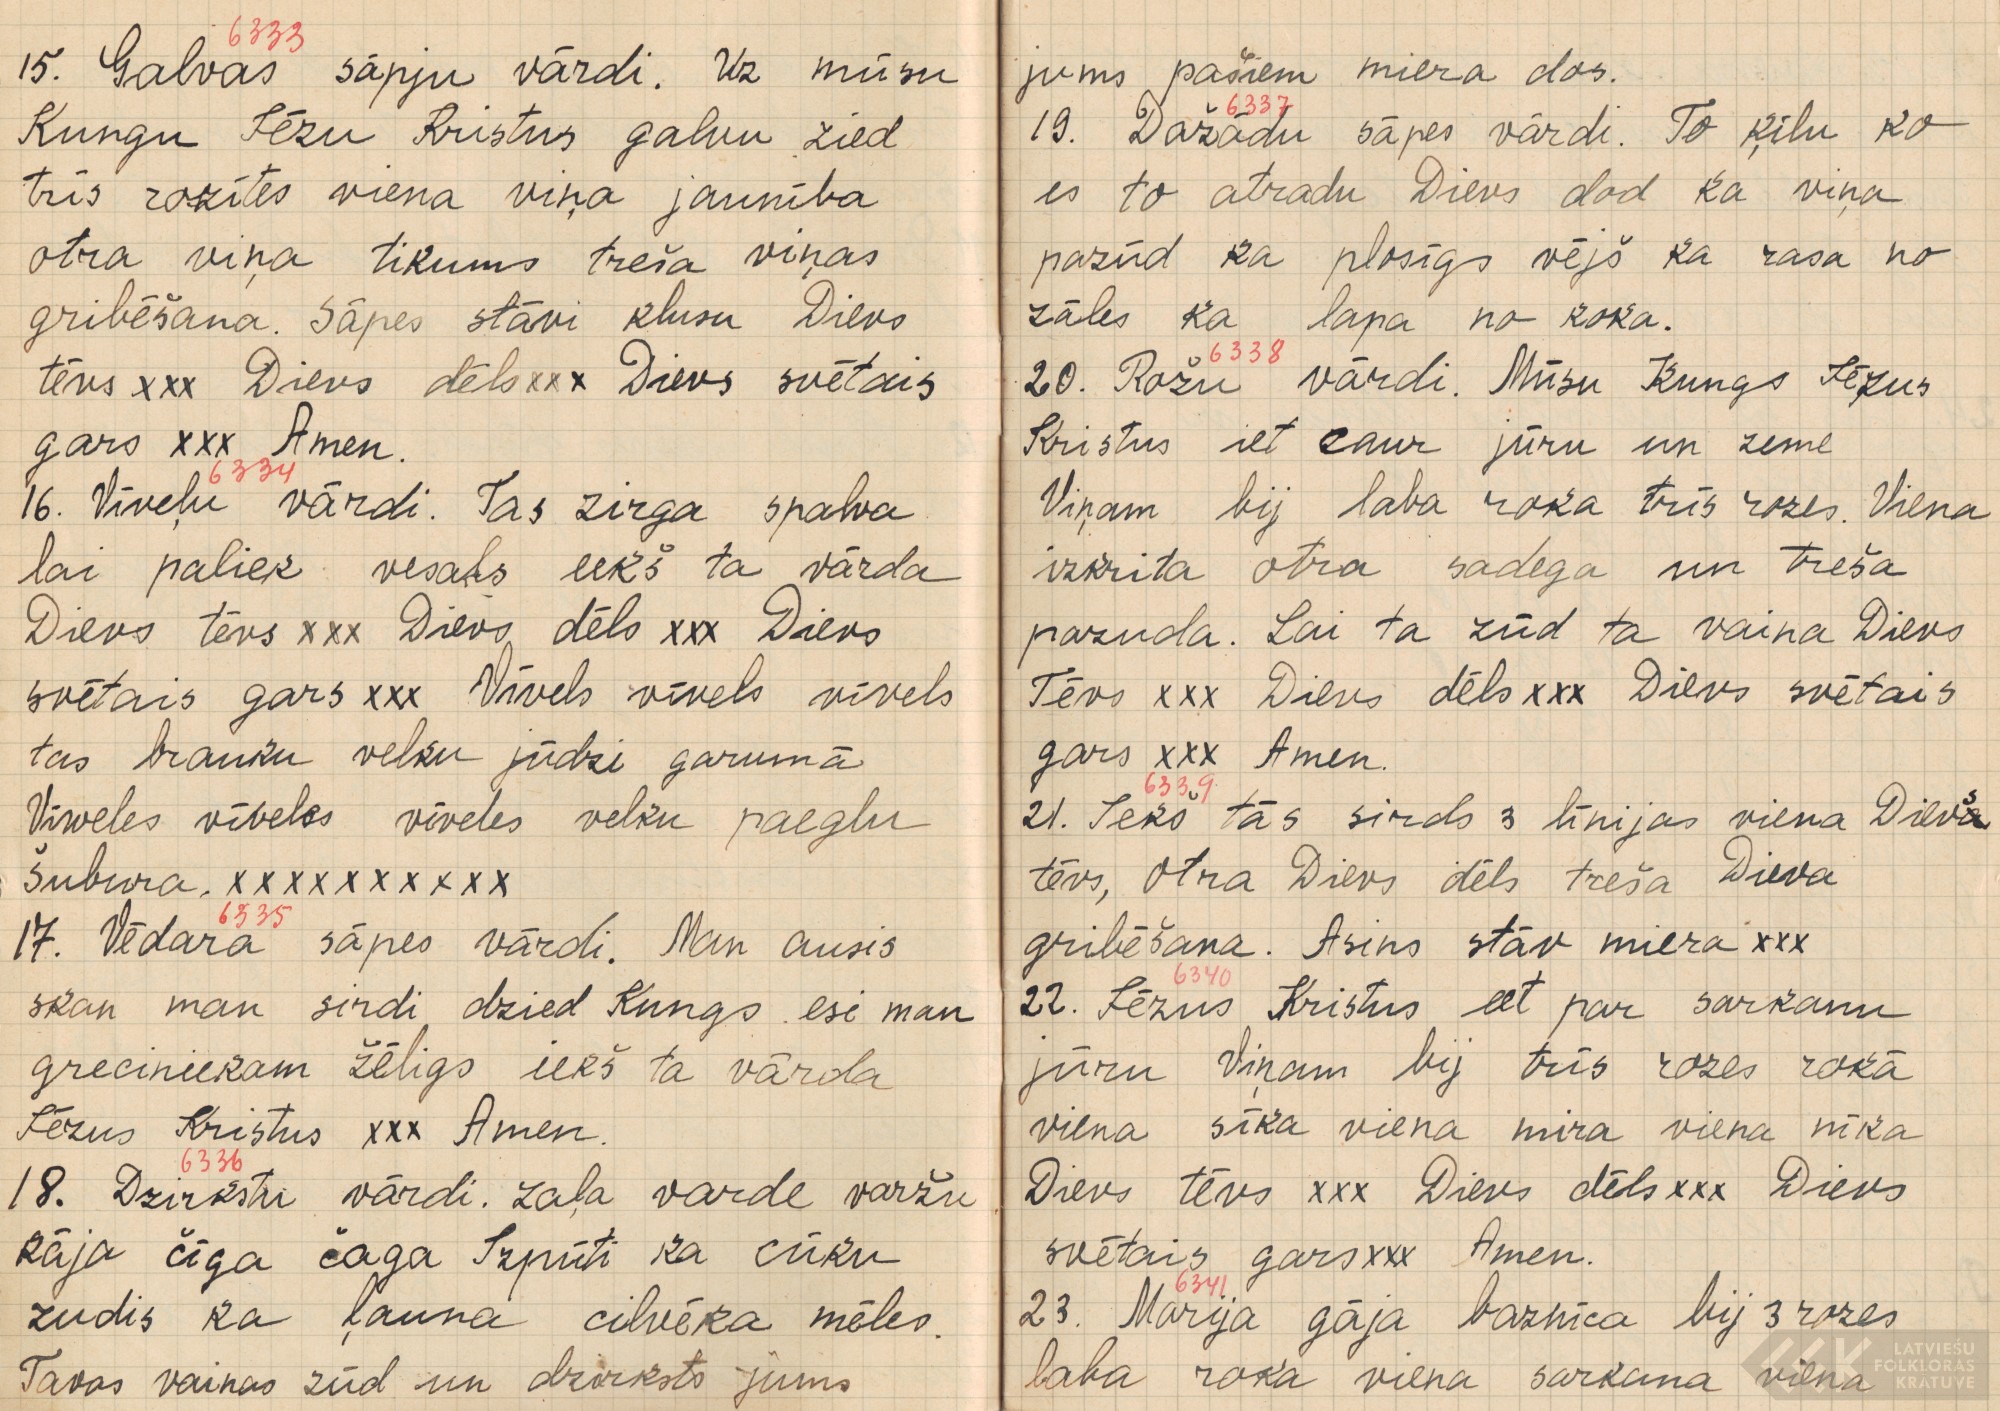 6333
15. Galvas sāpju vārdi. Uz mūsu
Kungu Jēzu Kristus galvu zied
trīs rozītes viena viņa jaunība
otra viņa tikums treša viņas
gribēšana. Sāpes stāvi klusu Dievs
tēvs xxx Dievs dēls xxx Dievs svētais
gars xxx Amen.
6334
16. Vīveļu vārdi. Tas zirga spalva
lai paliek vesals iekš ta vārda
Dievs tēvs xxx Dievs dēls xxx Dievs
svētais gars xxx Vīvels vīvels vīvels
tas brauku velku jūdzi garumā
Vīveles vīveles vīveles velku paeglu
šubura. x x x x x x x x x x
6335
17. Vēdara sāpes vārdi. Man ausis
skan man sirdi dzied Kungs esi man
greciniekam žēligs iekš ta vārda
Jēzus Kristus xxx Amen.
6336
18. Dzirkstu vārdi. zaļa varde varžu
kāja čīga čaga Izpūti ka cūku
zudis ka ļauna cilvēka mēles.
Tavas vainas zūd un dzirksts jums
jums pašiem miera dos.
6337
19. Dažādu sāpes vārdi. To ķīlu ko
es to atradu Dievs dod ka viņa
pazūd ka plosīgs vējš ka rasa no
zāles ka lapa no koka.
6338
20. Rožu vārdi. Mūsu Kungs Jēzus
Kristus iet caur jūru un zeme
Viņam bij laba roka trīs rozes. Viena
izkrita otra sadega un treša
pazuda. Lai ta zūd ta vaina Dievs
Tēvs xxx Dievs dēls xxx Dievs svētais
gars xxx Amen.
6339
21. Iekš tās sirds 3 līnijas viena Dievs
tēvs, otra Dievs dēls treša Dieva
gribēšana. Asins stāv miera xxx
6340
22. Jēzus Kristus iet par sarkanu
jūru Viņam bij trīs rozes rokā
viena sīka viena mira viena nīka
Dievs tēvs xxx Dievs dēls xxx Dievs
svētais gars xxx Amen.
6341
23. Marija gāja baznīca bij 3 rozes
laba roka viena sarkana viena
LATVIEŠU
FOLKLORAS
KRATUVE